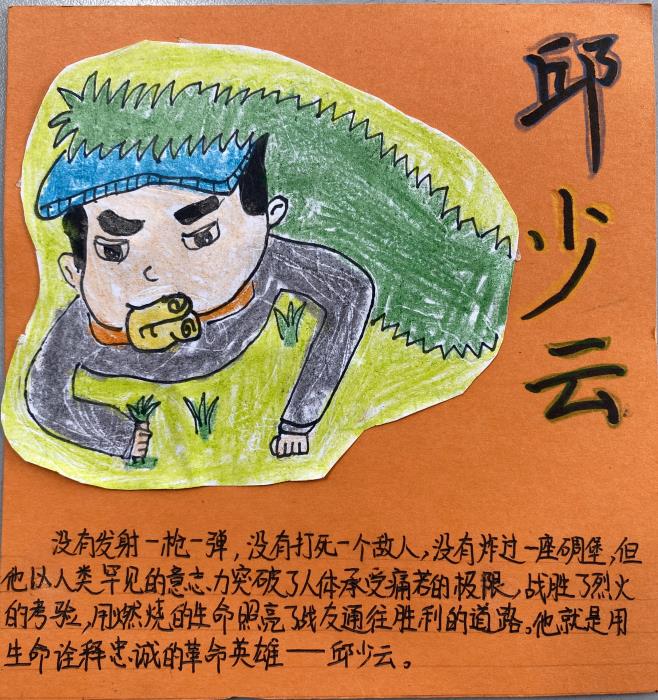 邱少云
没有发射一枪一弹，没有打死一个敌人，没有炸过一座碉堡，但
他以人类罕见的意志力突破了人体承受痛苦的极限，战胜了烈火
的考验，用燃烧的生命照亮了战友通往胜利的道路。他就是用
生命诠释忠诚的革命英雄——邱少云。